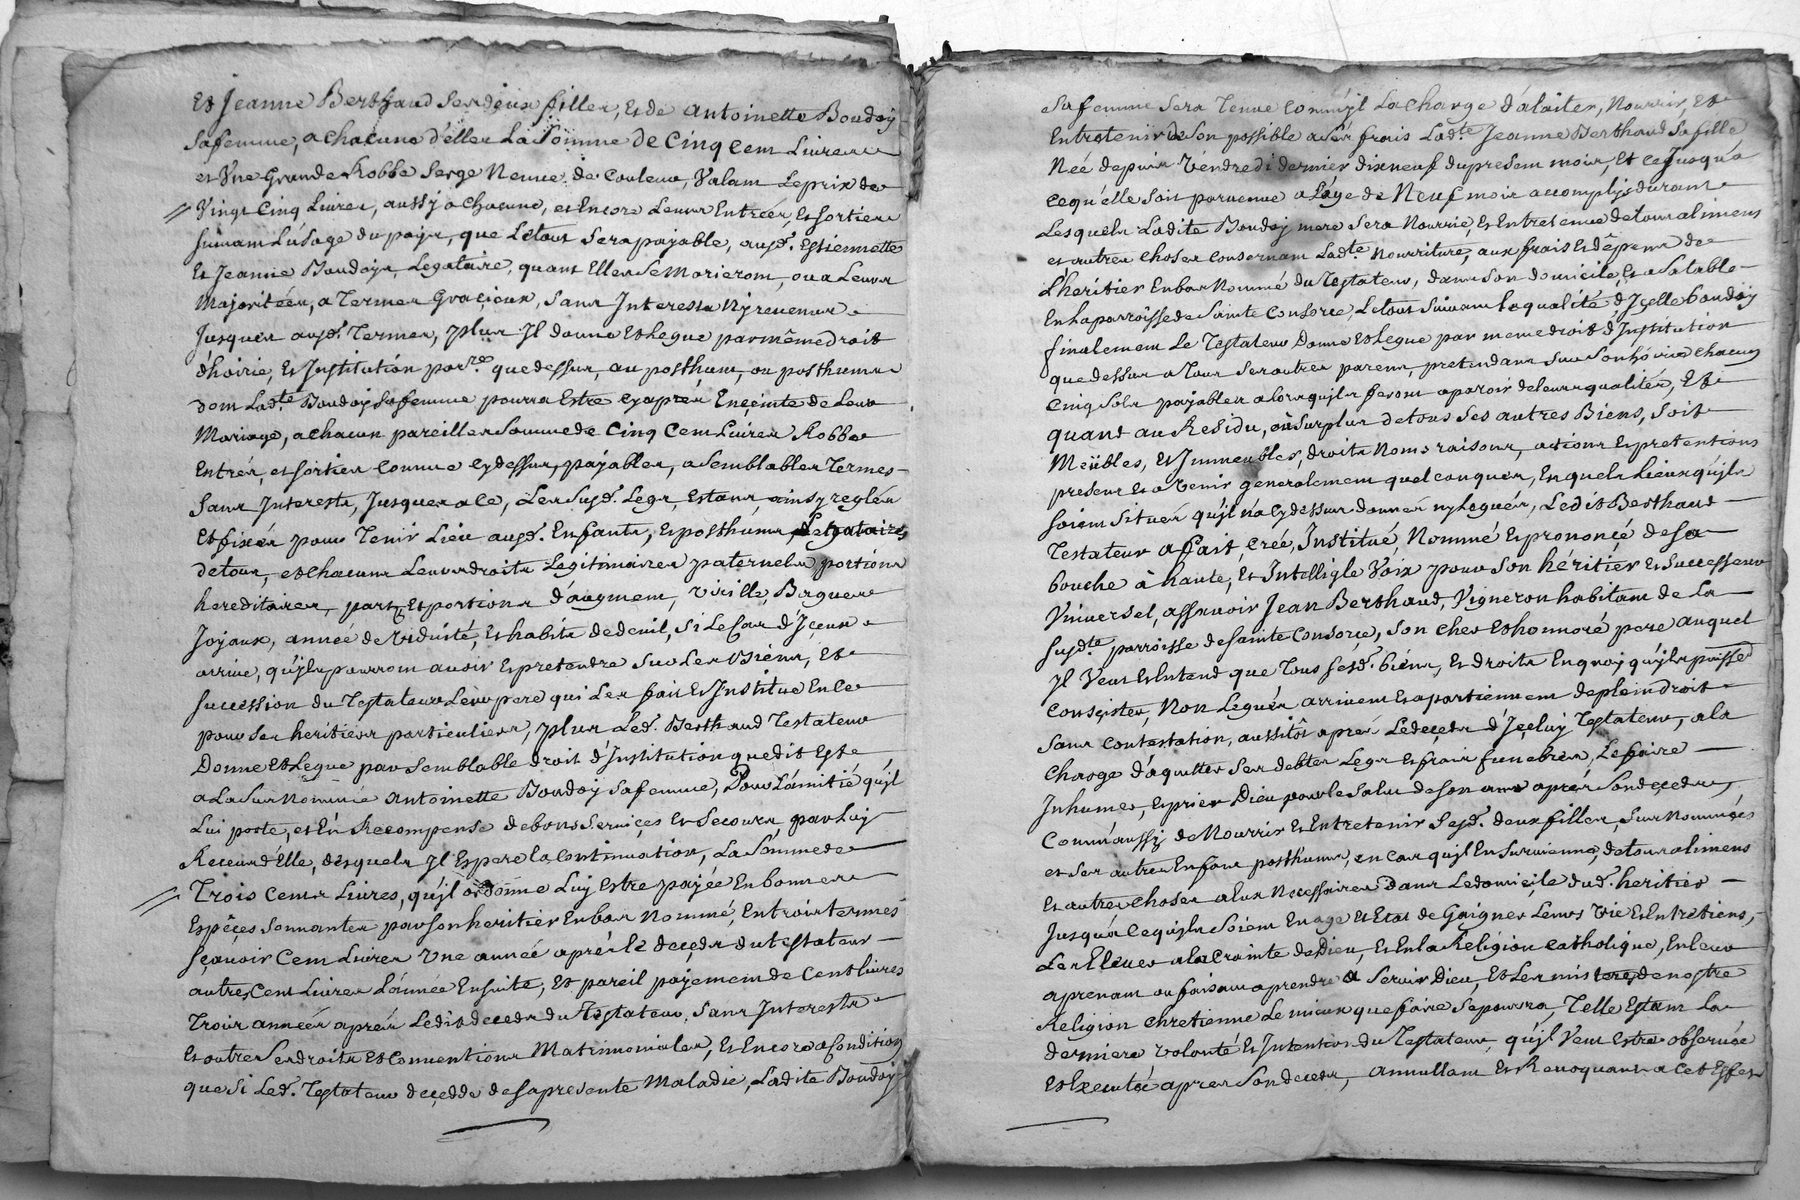 Et Jeanne Berthaud ses deux filles, Et de Antoinette Boudoÿ
Sa femme, a chacune d'elles La Somme de Cinq cent Livres
et Une Grande Robbe Serge Neuve de Couleur, Valant Le prix de
Vingt Cinq Livres, aussÿ a chacune, et Encore Leurs Entrées, Et sorties
suivant L'usage du paÿs, que Letout Sera paÿable, ausd. Estiennette
Et Jeanne Boudoÿs, Legataire, quant Elles Se Marieront, ou a Leurs
Majoritées, a Termes Gracieux, Sans Interests Nÿ revenus
Jusques ausd. Termes, plus Jl donne Et Legue par même droit
d'hoirie, Et Jnstitution par.re que dessus, au posthum, ou posthumes
dont Lad.te Boudoÿ Sa femme pourra Estre cÿ aprés Enceinte de Leur
Mariage, a chacun pareilles Somme de Cinq Cent Livres Robbe
Entrés, et sorties Comme cÿ dessus, paÿables, a Semblables Termes
Sans Interests, Jusques a ce, Les Susd. Legs, Estans ainsÿ reglés
Et fixés pour Tenir Lieu ausd. Enfants, Et posthumes Legataires
de tous, et chacuns Leurs droits Legitimaires paternels, portions
hereditaires, parts Et portions d'augment, virille, Bagues
Joÿaux, année de Viduité, Et habits de deuil, si Le Cas d'Jceux
arrive, qu'jls pourront avoir Et pretendre Sur Les Biéns, Et
succession du Testateur Leur pere qui Les fait Et Jnstitue En ce
pour Ses heritiers particuliers, plus Led. Berthaud Testateur
Donne Et Legue par Semblable droit d'Jnstitution que dit Est
a La Sus Nommée Antoinette Boudoÿ Sa femme, Pour L'amitié qu'jl
Lui porte, et En Recompense de bons Services Et Secours, par Luÿ
Receus d'Elle, desquels Jl Espere la Continuation, La Somme de
Trois Cents Livres, qu'jl ordonne Luÿ Estre paÿée En bonnes
Espêces Sonnantes par Son heritier En bas Nommé, En trois termes
sçavoir Cent Livres Une année aprés le decéds du testateur
autres Cent Livres L'année Ensuite, Et pareil paÿement de Cent livres
Trois années aprés Ledit decéds du Testateur, Sans Interests
Et outre Ses droits Et Conventions Matrimoniales, Et Encore a Condition
que Si Led. Testateur decedde de Sa presente Maladie, Ladite Boudoÿ
sa femme Sera Tenue Comm'jl La Charge d'alaiter, Nourrir, Et
Entretenir de Son possible a Ses frais Lad.te Jeanne Berthaud Sa fille
Née depuis Vendredi dernier dixneuf du present mois, Et ce Jusqu'a
ce qu'elle Soit parvenue a L'age de Neuf mois accomplis, durant
Lesquels Ladite Boudoÿ mere Sera Nourrie, Et Entretenue de tous alimens
et autres choses Consernant Lad.te Nourriture, aux frais Et dêpens de
L'heritier En bas Nommé du Testateur, dans Son domicile, Et a Sa table
En La parroisse de Sainte Consorce, Le tout Suivant la qualité d'Jcelle Boudoÿ
finalement Le Testateur Donne Et Legue par meme droit d'Jnstitution
que dessus a Tous Ses autres parens, pretendans Sur Son hoirie chacun
Cinq Sols paÿables alors qu'jls feront aparoir de leurs qualités, Et
quant au Residu, où Surplus de tous Ses autres Biens, Soit
Meübles, Et Jmmeubles, droits Noms raisons, actions Et pretentions
presens Et a Venir generalement quelconques, En quels Lieux qu'jls
soient Situés qu'jl n'a cÿ dessus donnés nÿ Legués, Ledit Berthaud
Testateur a fait, créé, Jnstitué, Nommé Et prononcé de sa
bouche à haute, Et Intelligle Voix pour Son héritier Et Successeur
Universel, assavoir Jean Berthaud, Vigneron habitant de La
susd.te parroisse de Sainte Consorce, Son cher Et honnoré pere auquel
Jl Veut Et Entend que Tous Sesd. biéns, Et droits En quoÿ qu'jls puisse
Conscister, Non Legués arrivent Et apartiennent de plein droit
Sans Contestation, aussitôt aprés Le decéds d'Jceluÿ Testateur, a la
Charge d'aquitter Ses debtes Legs Et frais funebres, Le faire
Jnhumer, Et prier Dieu pour le Salut de Son ame aprés Son decéds,
Comm'aussÿ de Nourrir Et Entretenir Sesd. deux filles, Sus Nommées
et Ses autres Enfans posthumes, en cas qu'jl En Survienne, de tous alimens
Et autres choses a Eux Necessaires dans Le domicile dud. heritier
Jusqu'a ce qu'jls Soient En age Et Etat de Gaigner Leurs Vie Et Entretiens,
Les Elever a La Crainte de Dieu, Et En La Religion Catholique, En leur
aprenant ou faisant aprendre a Servir Dieu, Et Les misteres de nostre
Religion Chretienne Le mieux que faire Se pourra, Telle Estant La
derniere Volonté Et Jntention du Testateur, qu'jl Veut Estre observée
Et Executée aprés Son decéds, annullant Et Revoquant a Cet Effet